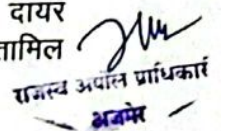 दायर
तामिल
राजस्व अपील प्राधिकारी
अजमेर